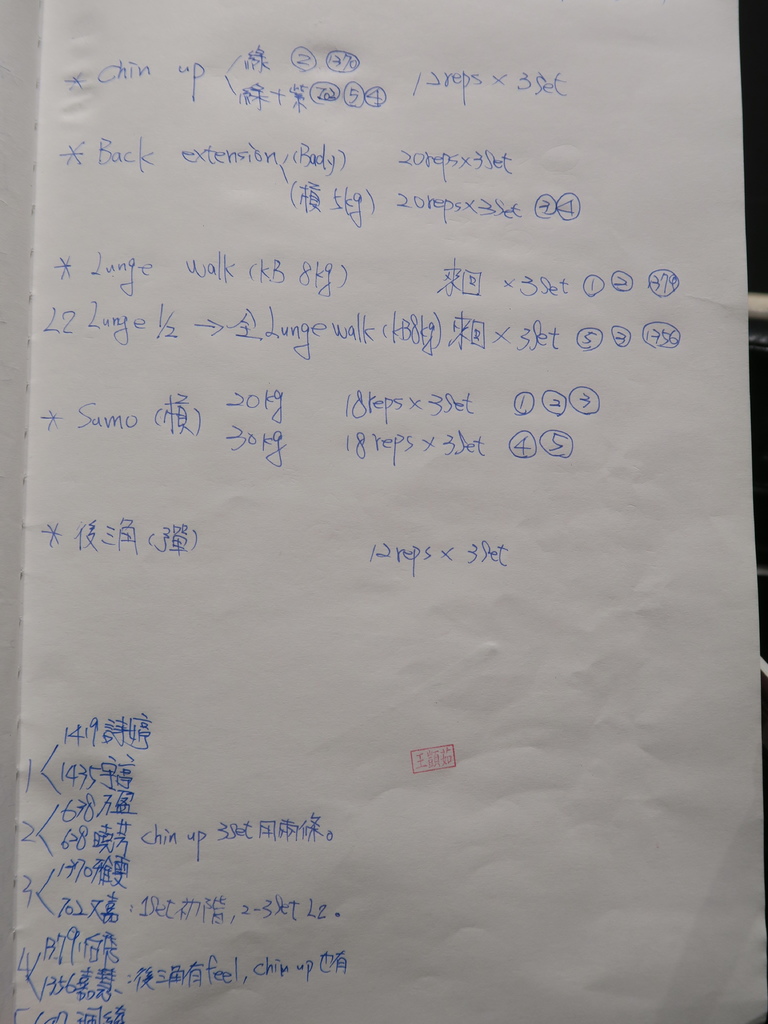 * Chin up 綠 ② 1370
綠+紫 702 ⑤ ④ 12reps × 3Set
* Back extension (Body) 20reps×3Set
(槓 5kg) 20reps×3Set ③ ④
* Lunge walk (KB 8kg) 來回 ×3Set ① ② 1379
L2 Lunge 1/2 → 全 Lunge walk (KB8kg) 來回 × 3Set ⑤ ③ 1356
* Sumo (槓) 20kg 18reps×3Set ① ② ③
30kg 18reps × 3Set ④ ⑤
* 後三角 (彈) 12reps × 3Set
1419 詩婷
1 1435
638
2 628 曉芳 Chin up 3Set 用兩條。
1370 雅雯
3 702 文嘉:1Set 初階, 2-3Set L2。
1379
4 1356 嘉慧:後三角有feel, chin up也有
5